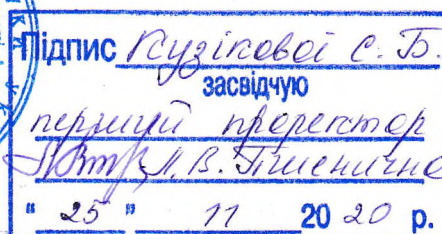 Підпис Кузікової С. Б.
засвідчую
перший проректор
Л. В. Пшенична
" 25 " 11 20 20 р.